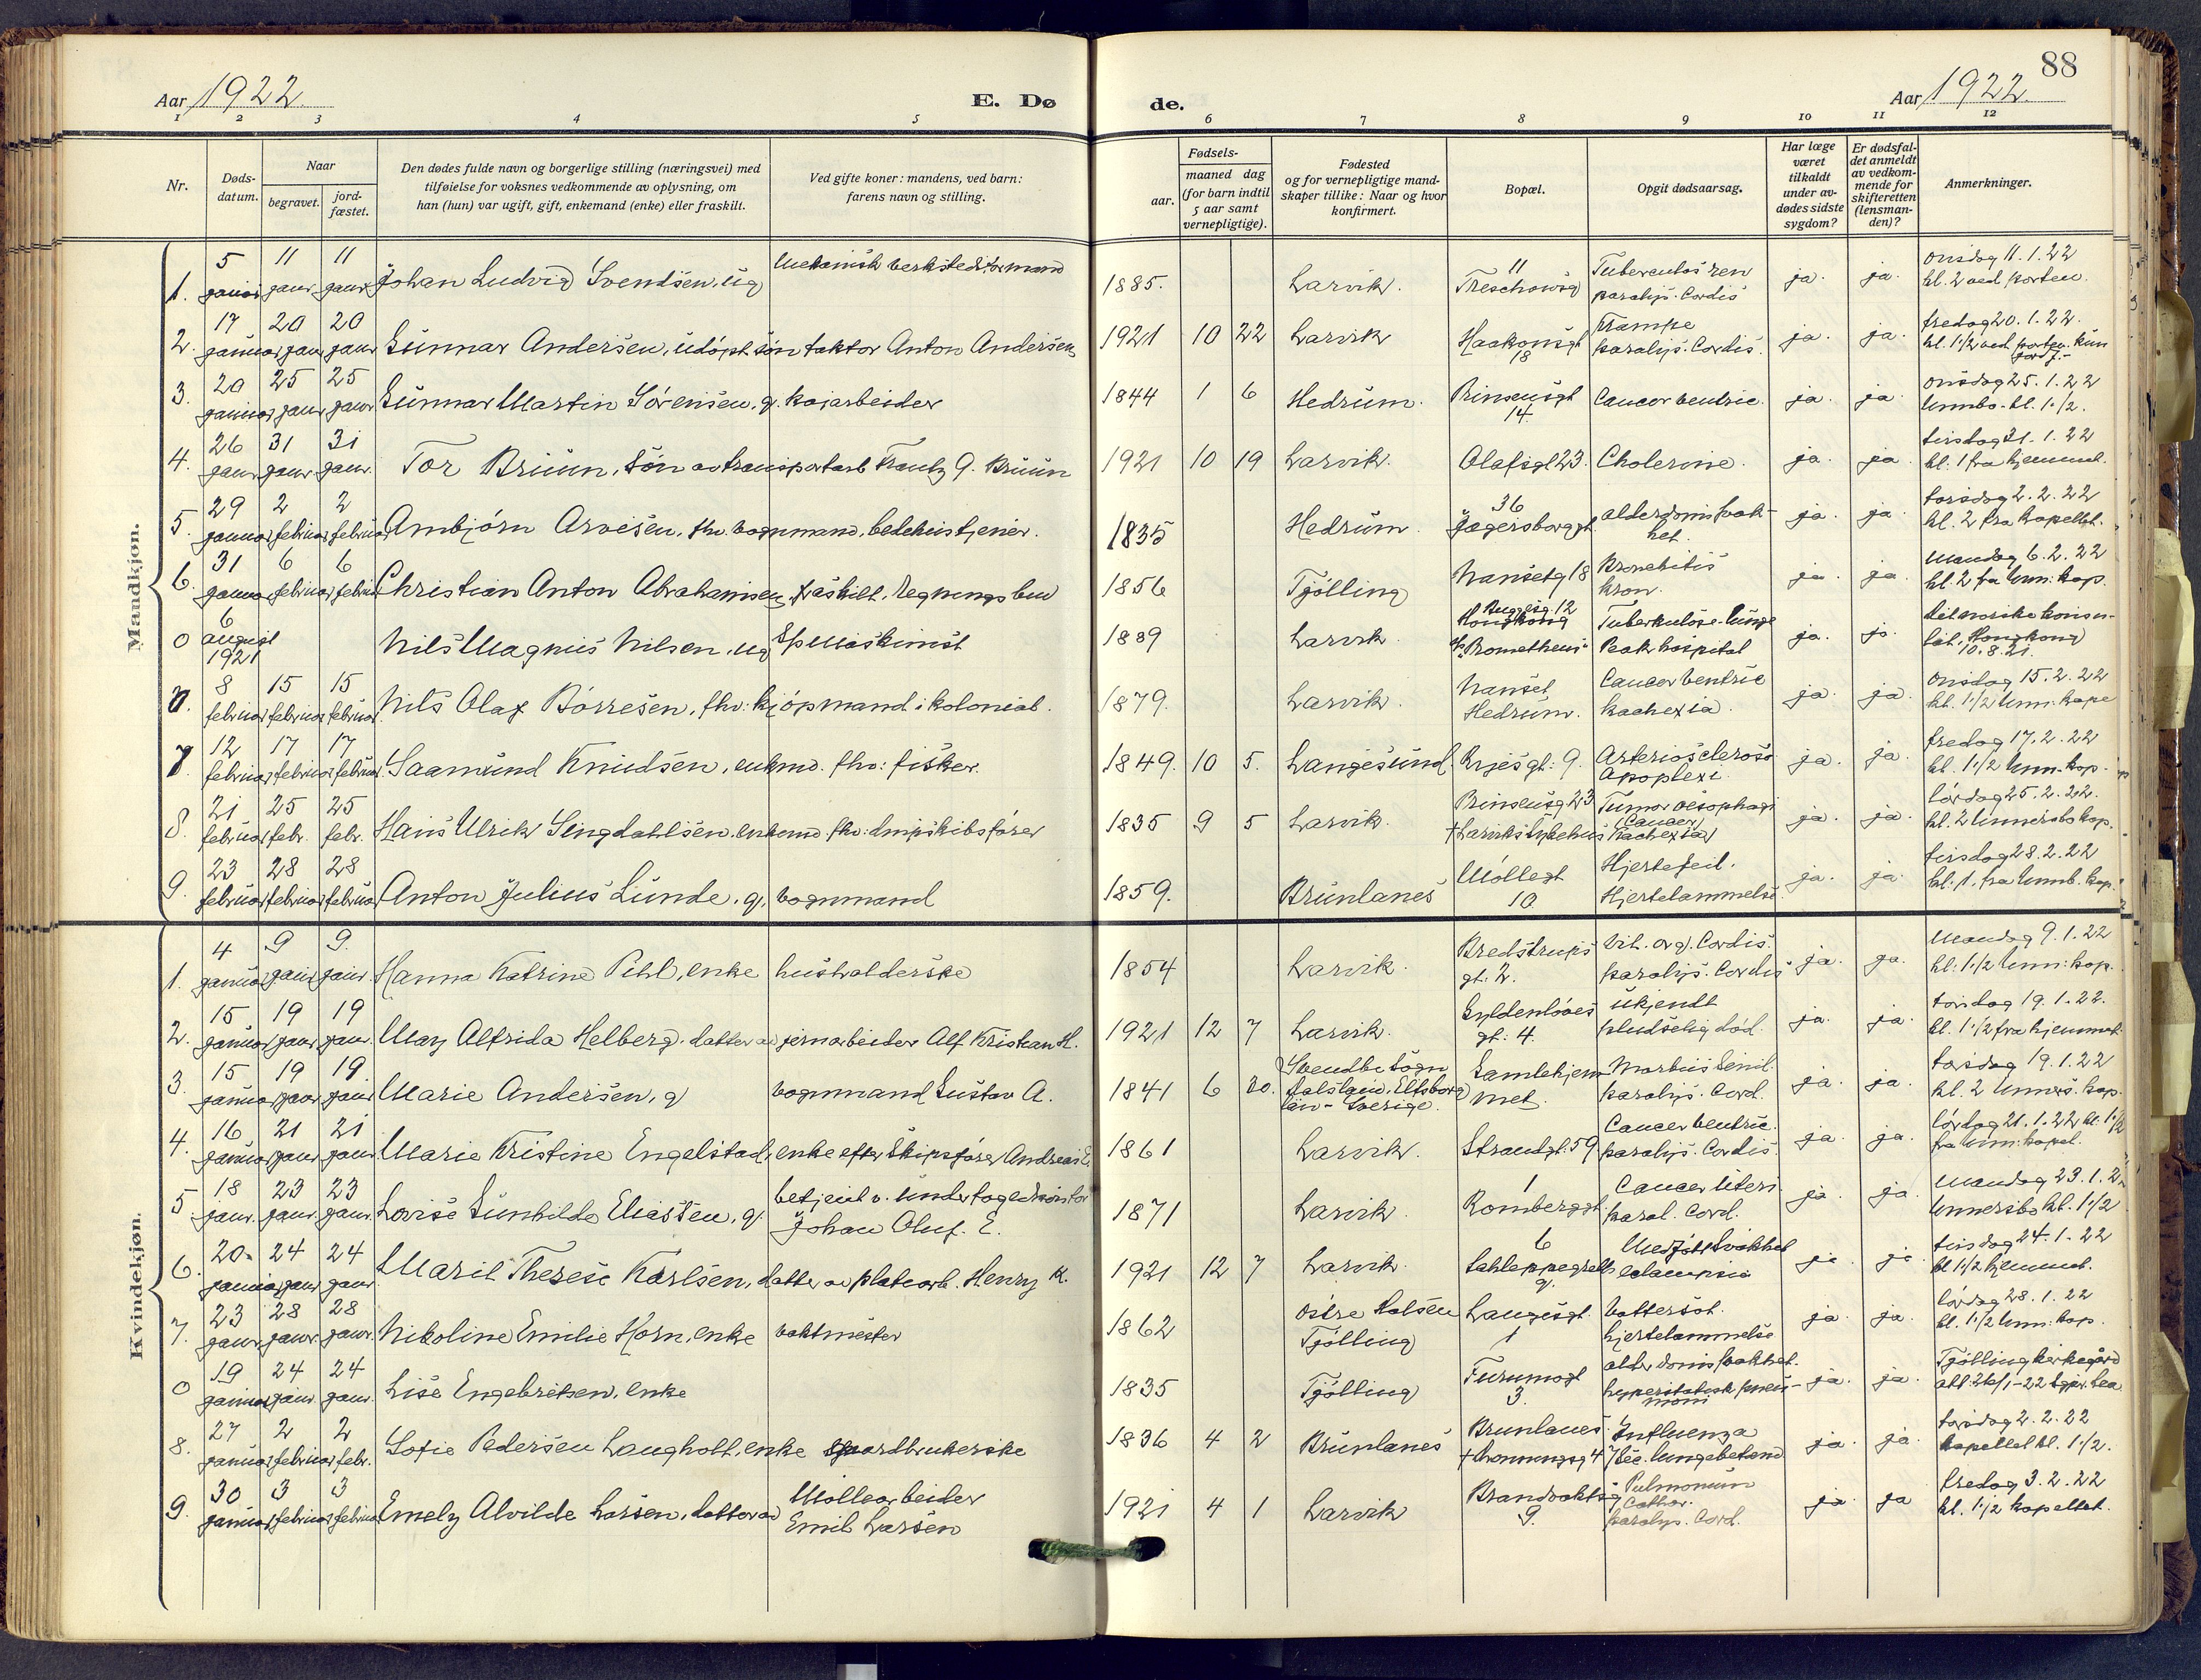 88
Aar 1922. E. Dø de. Aar 1922.
1 2 3 4 5 6 7 8 9 10 11 12
Nr.
Døds-
datum.
Naar
begravet.
jord-
fæstet.
Den dødes fulde navn og borgerlige stilling (næringsvei) med
tilføielse for voksnes vedkommende av oplysning, om
han (hun) var ugift, gift, enkemand (enke) eller fraskilt.
Ved gifte koner: mandens, ved barn:
farens navn og stilling.
Fødsels-
aar.
maaned dag
(for barn indtil
5 aar samt
vernepligtige).
Fødested
og for vernepligtige mand-
skaper tillike: Naar og hvor
konfirmert.
Bopæl.
Opgit dødsaarsag.
Har læge
været
tilkaldt
under av-
dødes sidste
sygdom?
Er dødsfal-
det anmeldt
av vedkom-
mende for
skifteretten
(lensman-
den)?
Anmerkninger.
Mandkjøn.
1. 5 januar 11 januar 11 januar Johan Ludvig Svendsen, ug Mekanisk verkstedsformand 1885. Larvik. 11 Treschowsg Tuberculos ren paralys. Cordis ja. ja. onsdag 11.1.22 kl. 2 ved porten.
2. 17 januar 20 jan 20 janr Gunnar Andersen, udöpt sön faktor Anton Andersen 1921 10 22 Larvik Haakonsgt 18 Krampe paralys. Cordis. ja. ja. fredag 20.1.22. kl. 1 1/2 ved porten. kun jordf.-
3. 20 januar 25 janr 25 janr Gunnar Martin Sörensen, g. kajarbeider 1844 1 6 Hedrum. Prinsensgt 14. Cancer ventric. ja. ja. onsdag 25.1.22 kl. 1 1/2.
4. 26 janr 31 janr 31 janr. Tor Bruun, sön av transportarb Frantz G. Bruun 1921 10 19 Larvik. Olafsgt 23. Cholerine. ja. ja. tirsdag 31.1.22 kl. 1 fra hjemmet.
5. 29 januar 2 februar 2 februar Ambjörn Arvesen, fhv. vognmand, bedehustjener. 1835 Hedrum. 36 Jegersborggt alderdomssvak-het. ja. ja. torsdag 2.2.22 kl. 2 fra kapellet.
6. 31 januar 6 februar 6 februar Christian Anton Abrahamsen, fraskilt, Regningsbud 1856 Tjölling Nansetg 18 Bronchitis kron. ja. ja. Mandag 6.2.22 kl. 2 fra Unn: kap.
0 6 august 1921 Nils Magnus Nilsen, ug Skibsmaskinist 1889 Larvik. 12 Hongkong "Prometheus" Tuberkulose-lunge Peak hospital ja. ja. det norske konsu-lat, Hongkong 10.8.21.
7. 8 februar 15 februar 15 februar Nils Olaf Börresen, fhv: kjöpmand i kolonial. 1879. Larvik. Nanset Hedrum. Cancer ventric kachexia. ja. ja. onsdag 15.2.22 kl. 1 1/2 Unn: kape
7. 12 februar 17 februar 17 februar Saamund Knudsen, enkmd. fhv: fisker. 1849. 10 5. Langesund. Bryesgt: 9. Arteriosclerose Apoplexi. ja. ja. fredag 17.2.22 kl. 1 1/2 Unn. kap.
8. 21 februar 25 febr. 25 febr. Hans Ulrik Gingdahlsen, enkemd. fhv: dmpskibsförer 1835 9 5 Larvik. Prinsensg 23 † Larviks sykehus Tumor oesophagi (Cancer) (Kachexia) ja. ja. lördag 25.2.22. kl. 2 Unnersbo kap.
9. 23 februar 28 februar 28 februar Anton Julius Lunde, g. vognmand 1859. Brunlanes Möllegt 10. Hjertefeil. Hjertelammelse. ja. ja. tirsdag 28.2.22 kl: 1. fra Unnb. kap.
Kvindekjøn.
1. 4 januar 9 janr 9. janr. Hanna Katrine Pihl, enke husholderske 1854 Larvik. Bredstrups gt. 2. Vit. org. Cordis. paralys. Cordis ja. ja. Mandag 9.1.22 kl: 1 1/2 Unn: kap.
2. 15 januar 19 janr 19 janr. May Alfrida Helberg. datter av jernarbeider Alf Kristian H. 1921 12 7 Larvik. Gyldenlöves gt: 4. ukjendt pludselig död. ja. ja. torsdag 19.1.22. kl. 1 1/2 fra hjemmet.
3. 15 januar 19 janr 19. janr Marie Andersen, g vognmand Gustav A. 1841 6 20. Sogn Elfsborg län - Sverige. Gamlehjem-met. Morbus Senil. paralys. Cord. ja. ja. torsdag 19.1.22 kl. 2 Unners. kap.
4. 16 januar 21 janr 21 janr. Marie Kristine Engelstad, enke efter Skipsförer Andreas E. 1861 Larvik. Strandgt. 59 Cancer ventric. paralys. Cordis. ja. ja. lördag 21.1.22 kl. 1 1/2 fra Unn: kapel.
5. 18 janr. 23 janr. 23 janr. Lovise Gunhilde Eliassen, g. betjent v. Undertogedskontor Johan Oluf. E. 1871 Larvik. 1 Romberggt. Cancer Uteri paral. Cord. ja. ja. Mandag 23.1.2 Unnersbo kl. 1 1/2
6. 20. januar 24 janr 24 janr Marit Therese Karlsen, datter av platearb. Henry K. 1921 12 7 Larvik. 6 Medfödt Svakhet eclampsia ja ja. tirsdag 24.1.22 kl 1 1/2 hjemmet.
7. 23 janr 28 janr. 28 janr. Nikoline Emilie Horn, enke vaktmester 1862 östre Halsen Tjölling Langesgt. 1 Vattersot. hjertelammelse ja. ja. lördag 28.1.22 kl. 1 1/2 Unn: kap.
0 19 januar 24 janr. 24 janr. Lise Engebretsen, enke 1835 Tjölling Furumogt 3. alderdomssvakhet. hypostatisk pneu-moni ja. ja. Tjölling kirkegård
8. 27 januar 2 februar 2 febr. Sofie Pedersen Langholt, enke gaardbrukerske 1836 4 2 Brunlanes Brunlanes. † Dronningsg 47 Influenza Sec. lungebetænd ja. ja. torsdag 2.2.22 kapellet kl. 1 1/2.
9. 30 januar 3 februar 3 februar Emely Alvilde Larsen, datter av Möllearbeider Emil Larsen 1921 4 1 Larvik Brandvaktsg 9. Pulmonum Cathar. paralys. Cord. ja. ja fredag 3.2.22 kl. 1 1/2 kapellet.